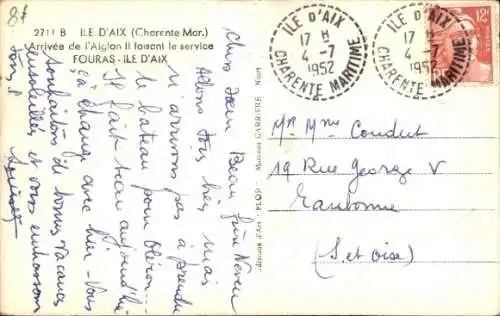 8f
2711 B ILE D'AIX (Charente Mar.)
Arrivée de l'Aiglon II faisant le service
FOURAS - ILE D'AIX
Chers
Beau frère Neveu
Allons très bien mais
n'arrivons pas à prendre
le bateau pour Oléron...
Il fait beau aujourd'hui
çà change avec hier - Vous
souhaitons de bonnes vacances
ensoleillées et vous embrassons
tous.
Editions d'Art - FLOR - Marceau CARRIÈRE - Niort
ILE D'AIX
17 H
4 -7
1952
CHARENTE MARITIME
ILE D'AIX
17 H
4 -7
1952
CHARENTE MARITIME
12F
Mr Mme Coudert
19 Rue George V
Eaubonne
(S. et Oise)